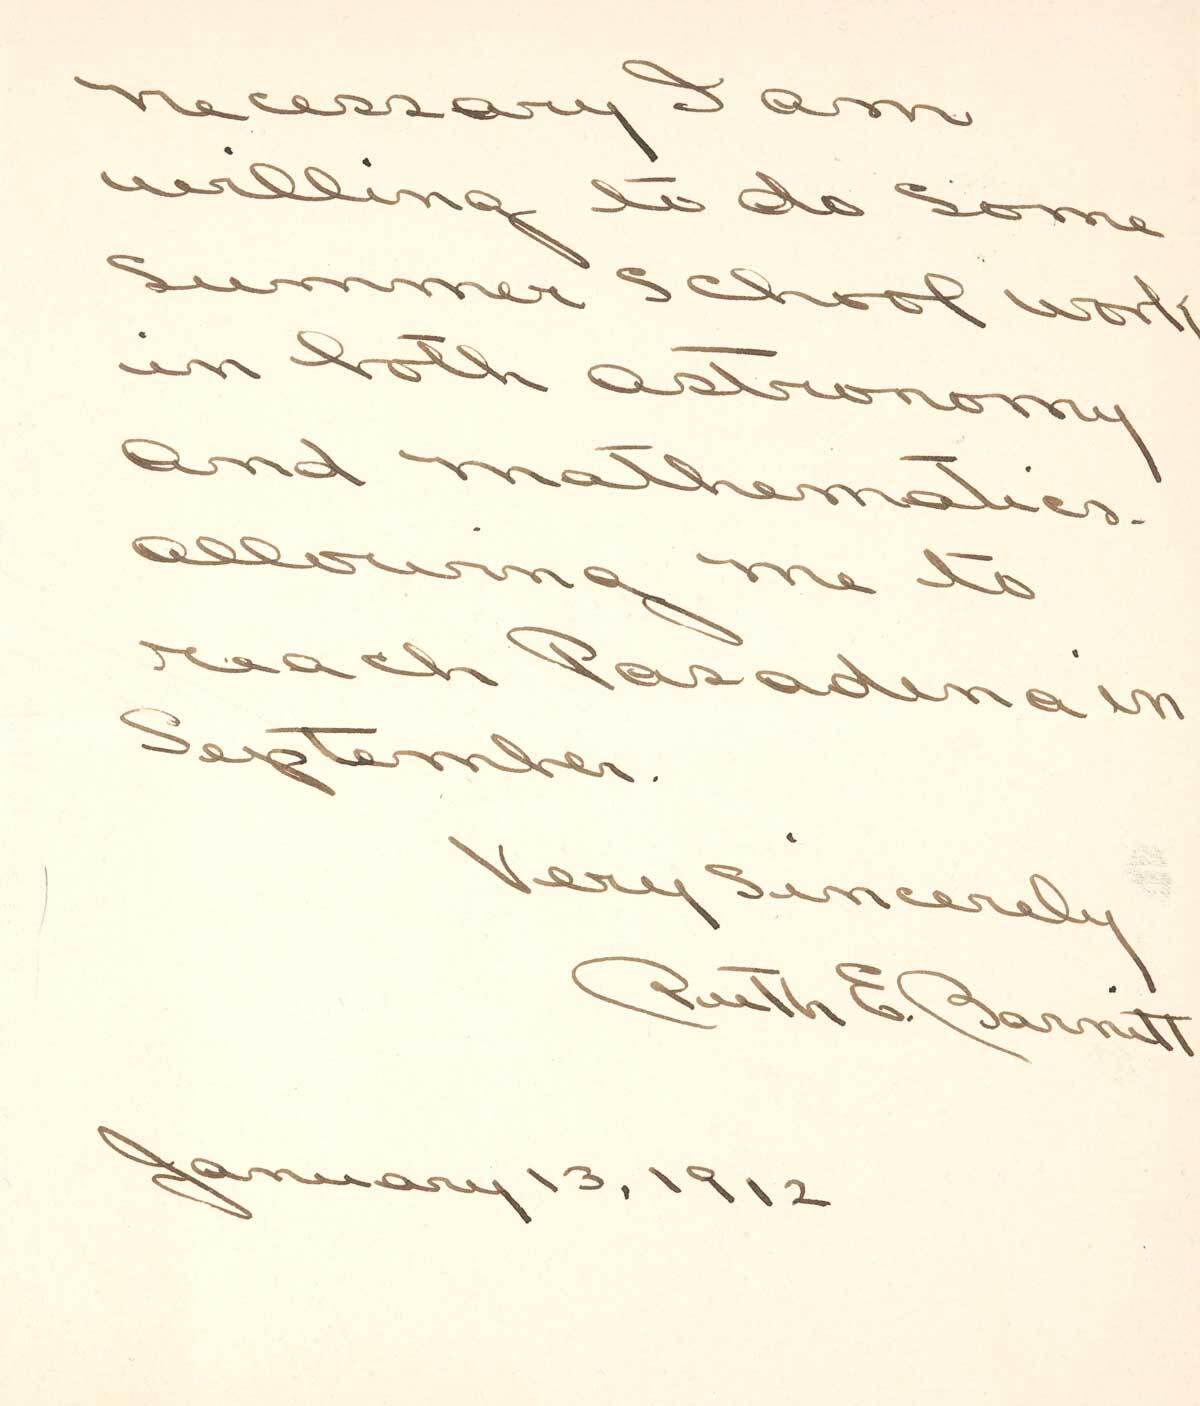 necessary I am
willing to do some
summer school work
in both astronomy
and mathematics.
allowing me to
reach Pasadena in
September.
Very sincerely
Ruth E. Barnitt
January 13, 1912